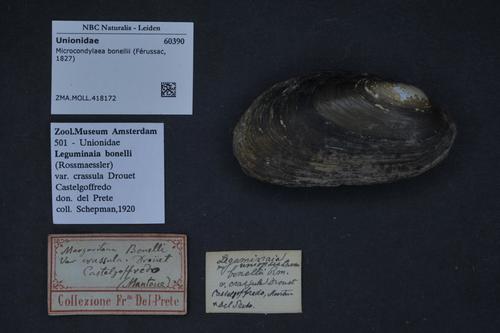 NBC Naturalis - Leiden
Unionidae 60390
Microcondylaea bonellii (Férussac,
1827)
ZMA.MOLL.418172
Zool.Museum Amsterdam
501 - Unionidae
Leguminaia bonelli
(Rossmaessler)
var. crassula Drouet
Castelgoffredo
don. del Prete
coll. Schepman,1920
Margaritana Bonelli
Var crassula. Drouet
Castelgoffredo
(Mantova)
Collezione Fr. Del-Prete
Leguminaia
bonelli Rm.
v. crassula Drouet
Castelgoffredo,
Del Prete.